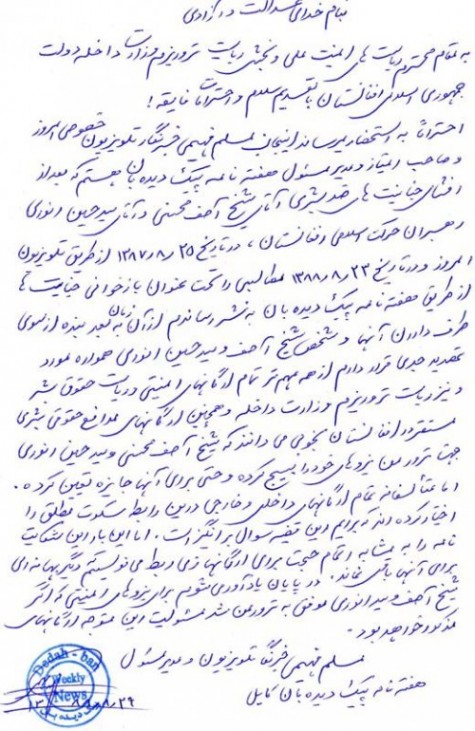 بنام خدای عدالت و آزادی
به مقام محترم ریاست های امنیت ملی و بخش ریاست تروریزم وزارت داخله دولت
جمهوری اسلامی افغانستان با تقدیم سلام و احترامات فایقه!
احتراماً به استحضار میرساند اینجانب مسلم فهیمی خبرنگار تلویزیون خصوصی امروز
و صاحب امتیاز و مدیر مسئول هفته نامه پیک دیده بان هستم که بعد از
افشای جنایت های ضد بشری آقای شیخ آصف محسنی و آقای سید حسین انوری
رهبران حرکت اسلامی افغانستان، در تاریخ ۱۳۸۷/۸/۲۵ از طریق تلویزیون
امروز و در تاریخ ۱۳۸۸/۸/۲۳ مطالبی را تحت عنوان بازخوانی جنایت ها
از طریق هفته نامه پیک دیده بان به نشر رساندم از آن زمان به بعد بنده از سوی
طرف داران آنها و شخص شیخ آصف و سید حسین انوری همواره مورد
تهدید جدی قرار دارم از همه مهمتر تمام ارگانهای امنیتی و ریاست حقوق بشر
و نیز ریاست تروریزم وزارت داخله و همچنین ارگانهای مدافع حقوق بشری
مستقر در افغانستان بخوبی می دانند که شیخ آصف محسنی و سید حسین انوری
جهت ترور من نیروهای خود را بسیج کرده و حتی برای آنها جایزه تعیین کرده.
اما متأسفانه تمام ارگانهای داخلی و خارجی درین رابطه سکوت مطلق را
اختیار کرده اند که برایم این قضیه سوال برانگیز است. اما این بار این شکایت
نامه را به مثابه اتمام حجت برای ارگانهای ذی ربط می نویسم تا دیگر بهانه ای
برای آنها باقی نماند. در پایان یادآوری می شوم برای نیروهای امنیتی که اگر
شیخ آصف و سید انوری موفق به ترور من شد مسئولیت این متوجه ارگانهای
مذکور خواهد بود.
مسلم فهیمی خبرنگار تلویزیون و مدیر مسئول
هفته نامه پیک دیده بان کابل
Dedah-ban
Weekly
News